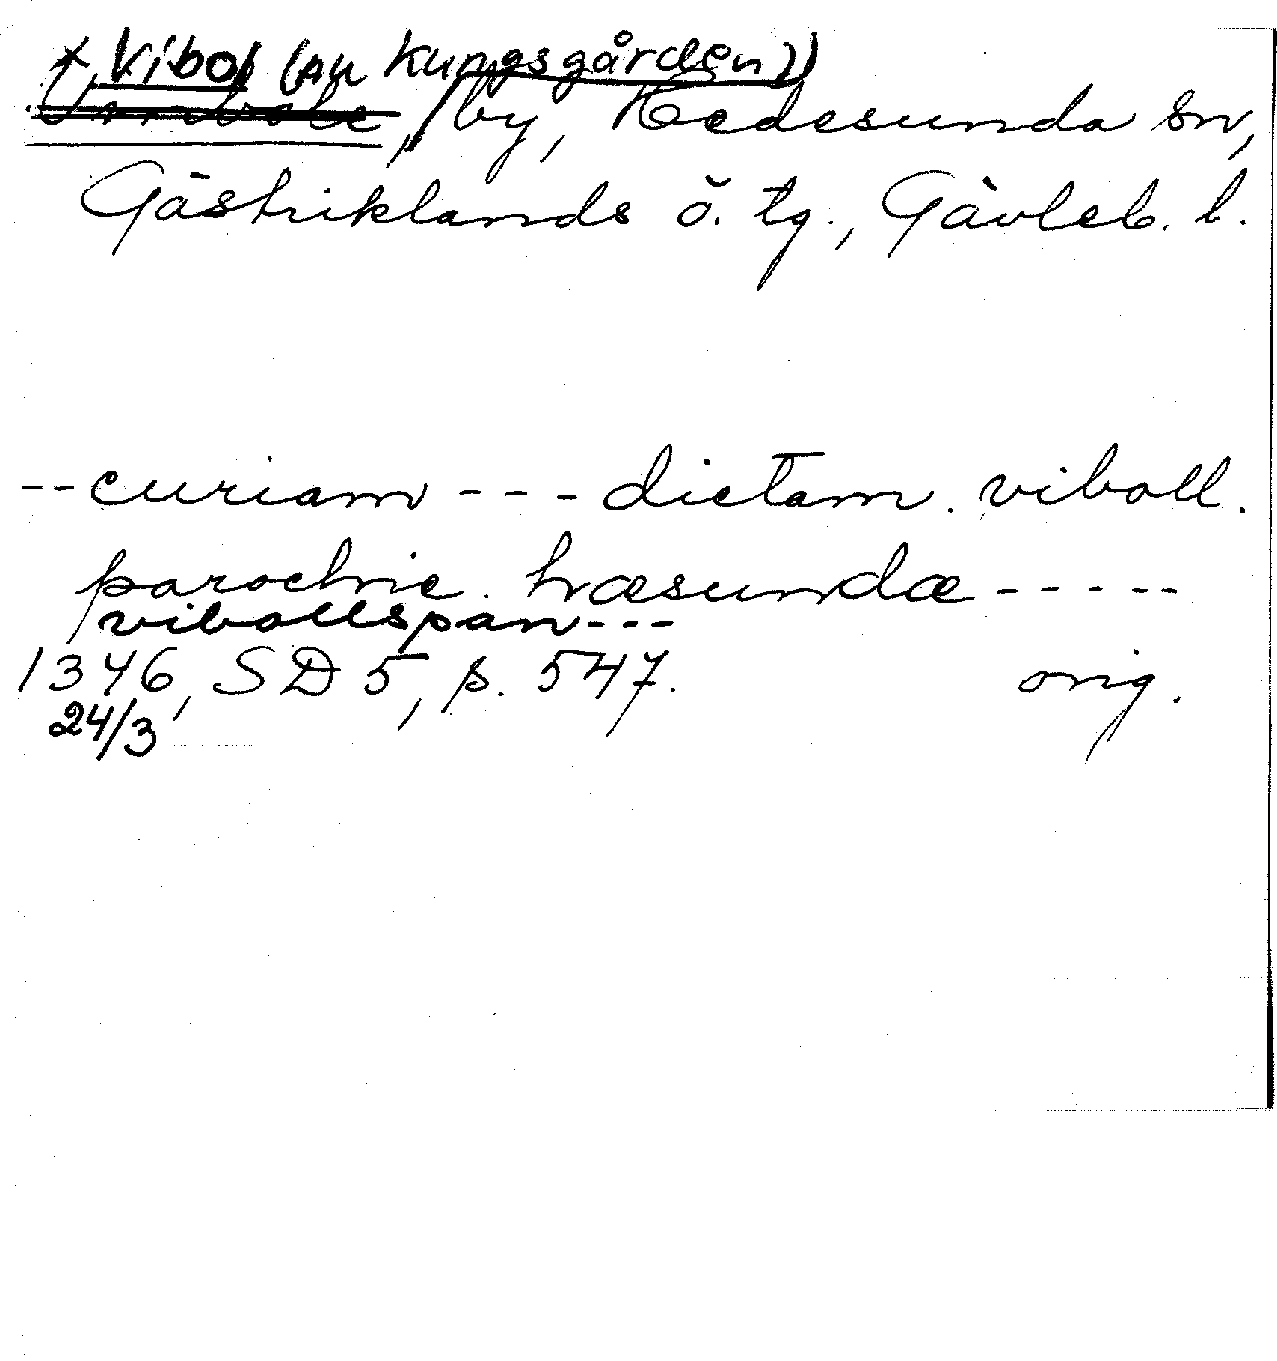 †Vibol (nu Kungsgården)
, by, Hedesunda sn,
Gästriklands ö. tg., Gävleb. l.
--curiam --- dictam. viboll.
parochie. hæsundæ-----
vibollspan---
1346, SD 5, p. 547. orig.
24/3